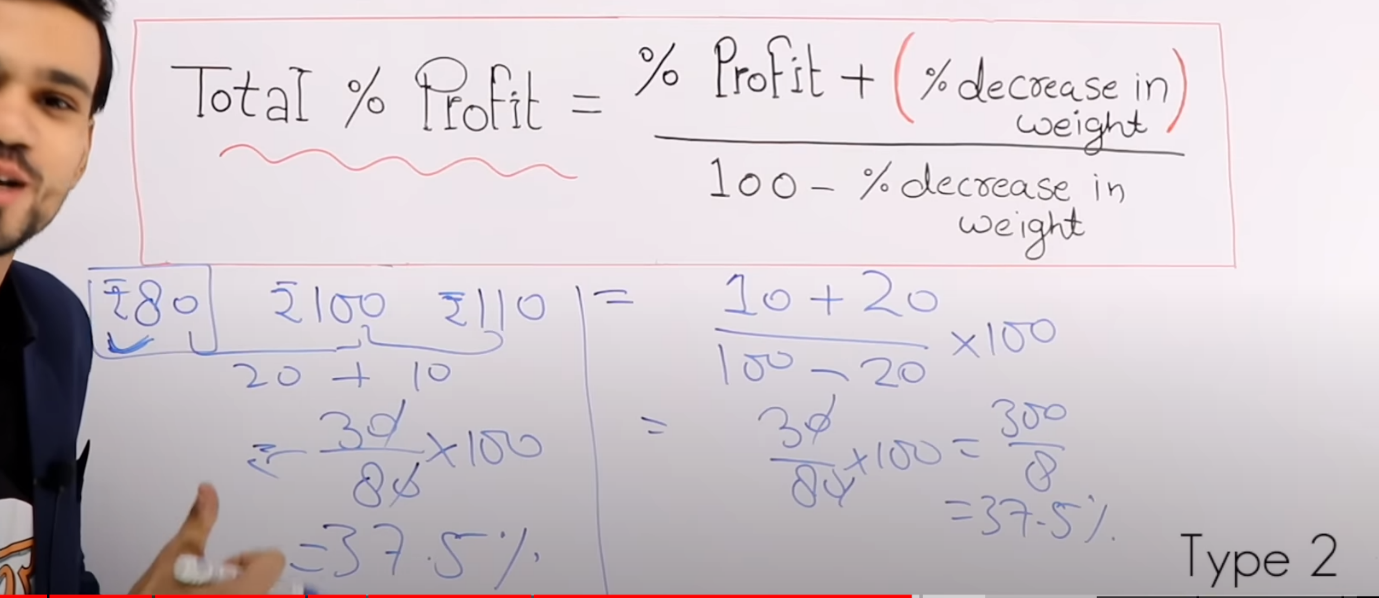 Total % Profit = % Profit + (% decrease in weight)
100 - % decrease in weight
₹80 ₹100 ₹110
20 + 10
= 30/80 × 100
= 37.5%
= 10 + 20 / 100 - 20 × 100
= 30/80 × 100 = 300/8
= 37.5%
Type 2